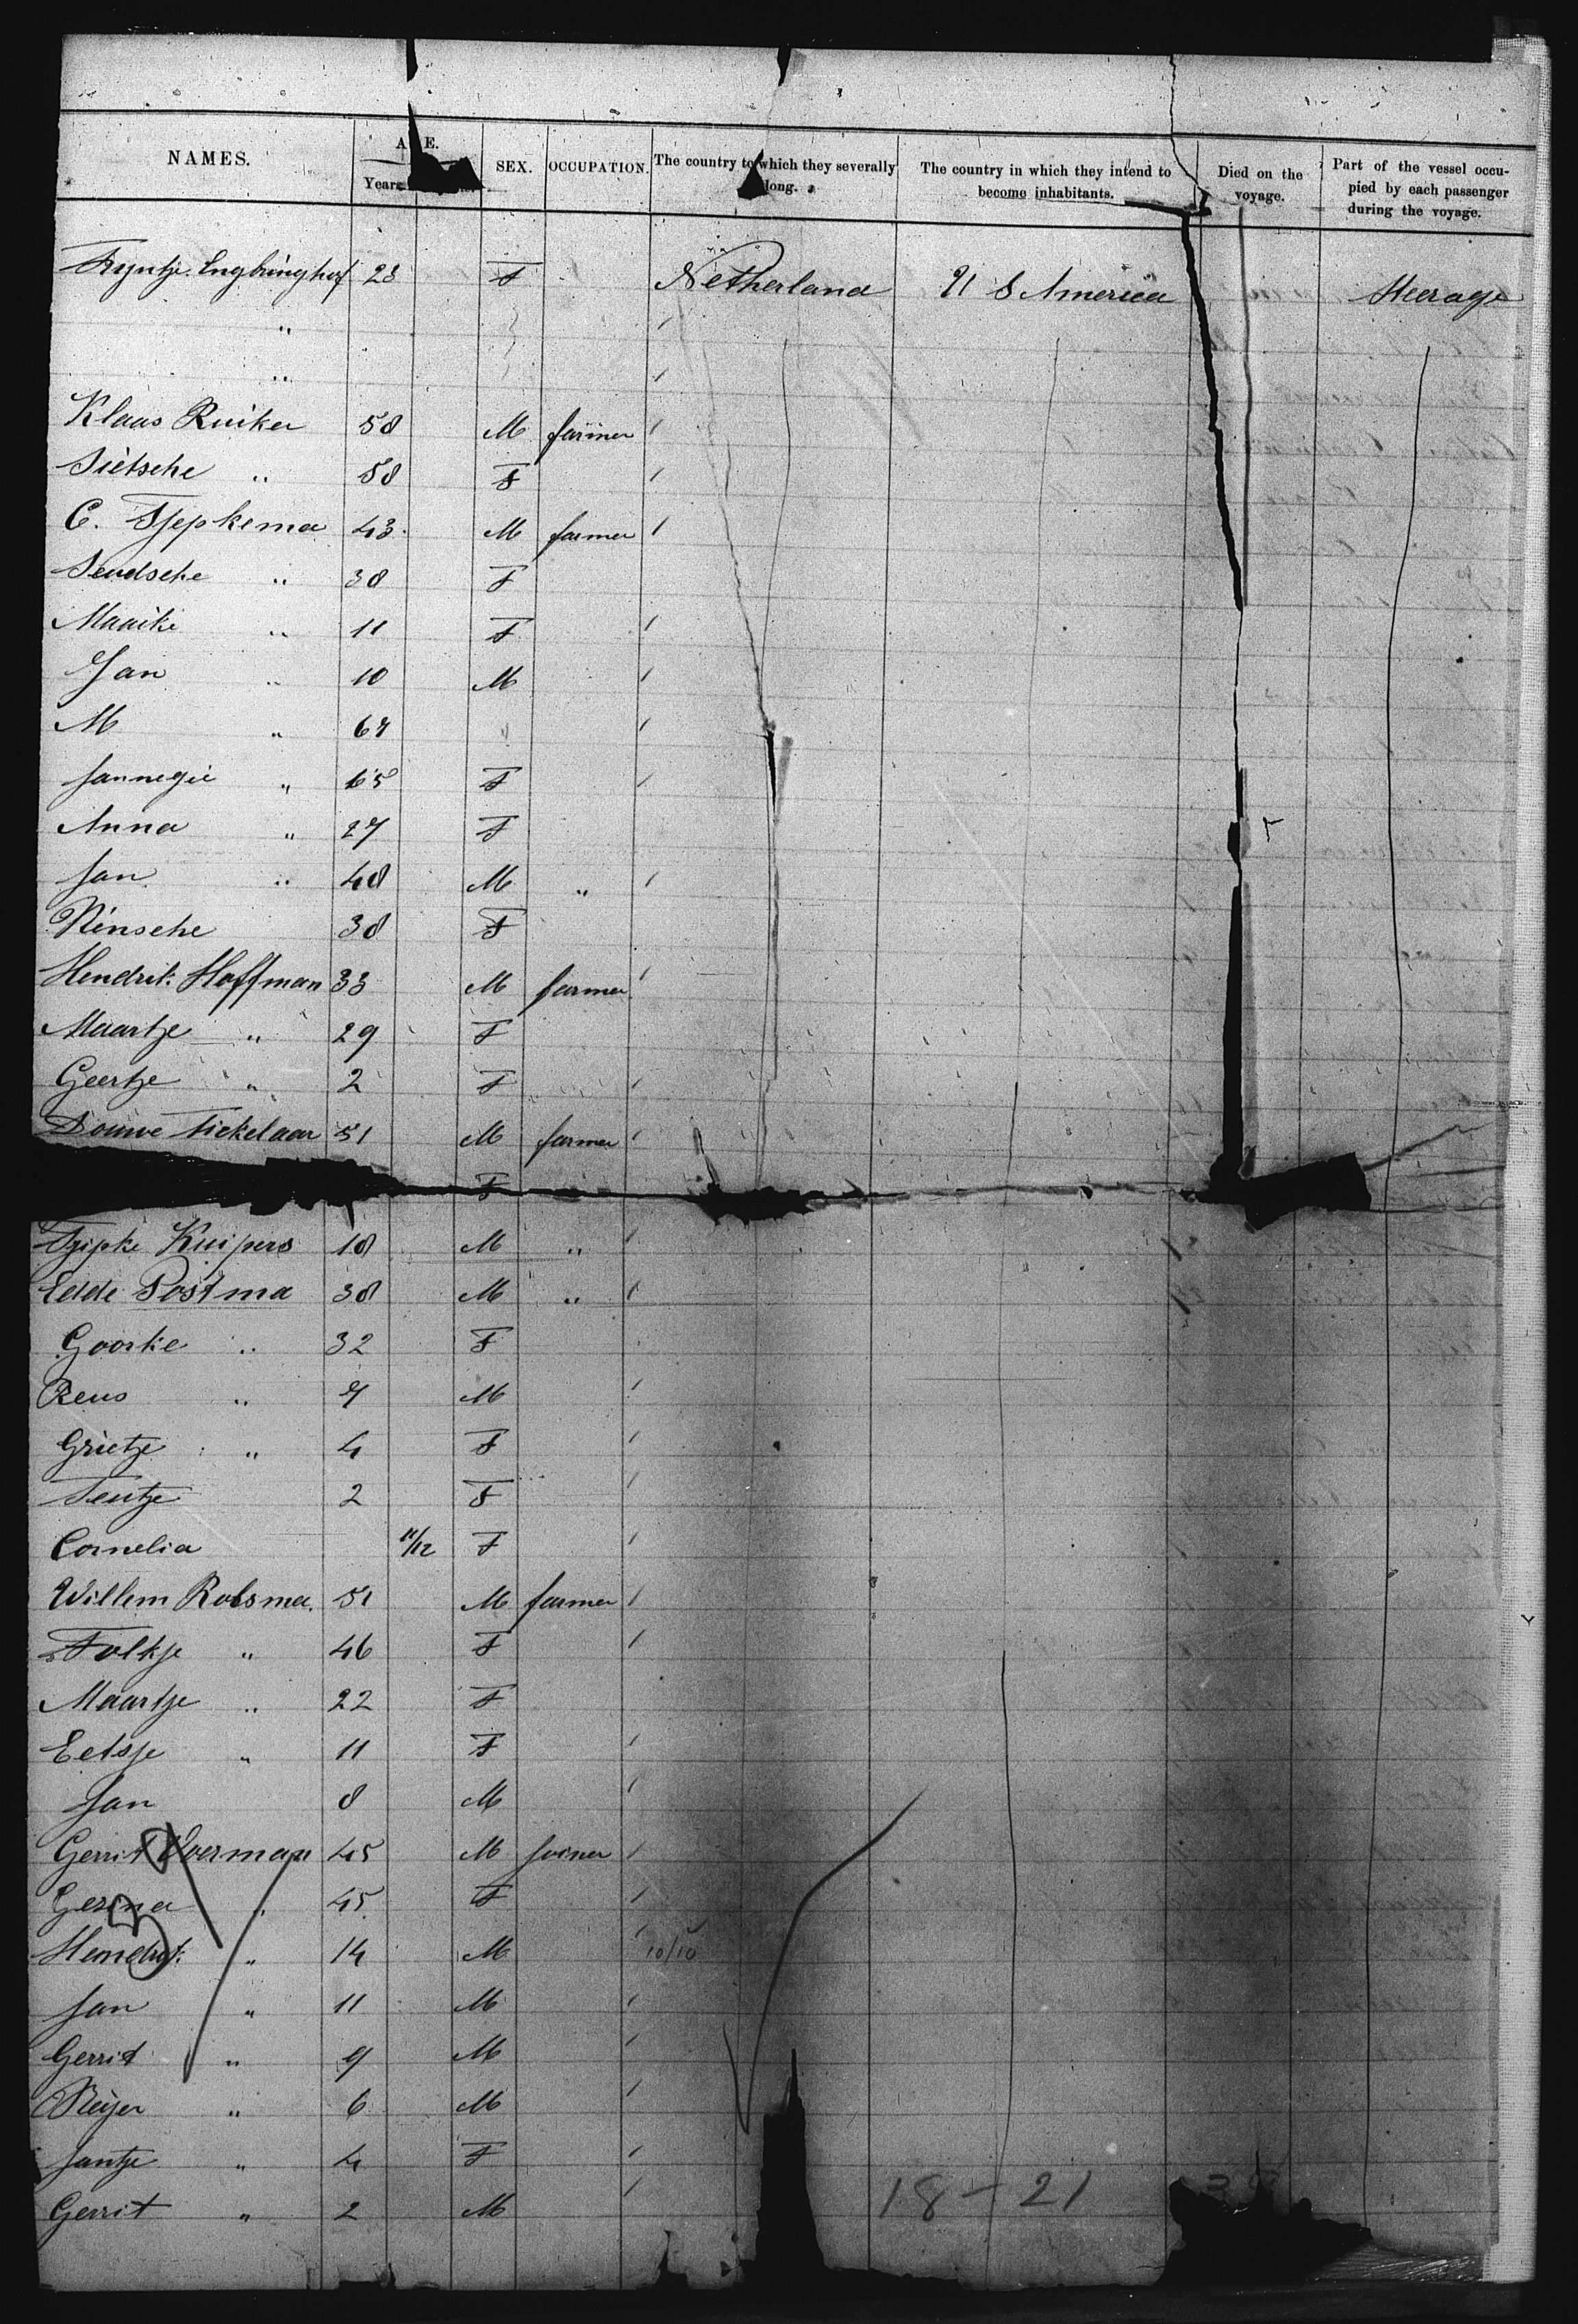 NAMES. A E. SEX. OCCUPATION. The country to which they severally long. The country in which they intend to become inhabitants. Died on the voyage. Part of the vessel occupied by each passenger during the voyage.
Years
Tryntje 23 F Netherland U S America Steerage
"
"
Klaas Ruiker 58 M farmer
Sietsche " 58 F
C. Tjepkema 43 M farmer
Sendsche " 38 F
Maaike " 11 F
Jan " 10 M
M " 67
Jannegie " 65 F
Anna " 27 F
Jan " 48 M "
Rinsche 38 F
Hendrik Hoffman 33 M farmer
Maartje " 29 F
Geertje " 2 F
Douwe Tichelaar 51 M farmer
F
Tjipke Kuipers 18 M "
Edde Postma 38 M "
Goorke " 32 F
Rens " 7 M
Grietje " 4 F
Tentje 2 F
Cornelia 11/12 F
Willem Robsma 51 M farmer
Folkje " 46 F
Maartje " 22 F
Eetsje " 11 F
Jan 8 M
Gerrit 45 M joiner
Gesina " 45 F
Hendrik " 14 M 10/10
Jan " 11 M
Gerrit " 9 M
Reijer " 6 M
Jantje " 4 F
Gerrit " 2 M
18-21